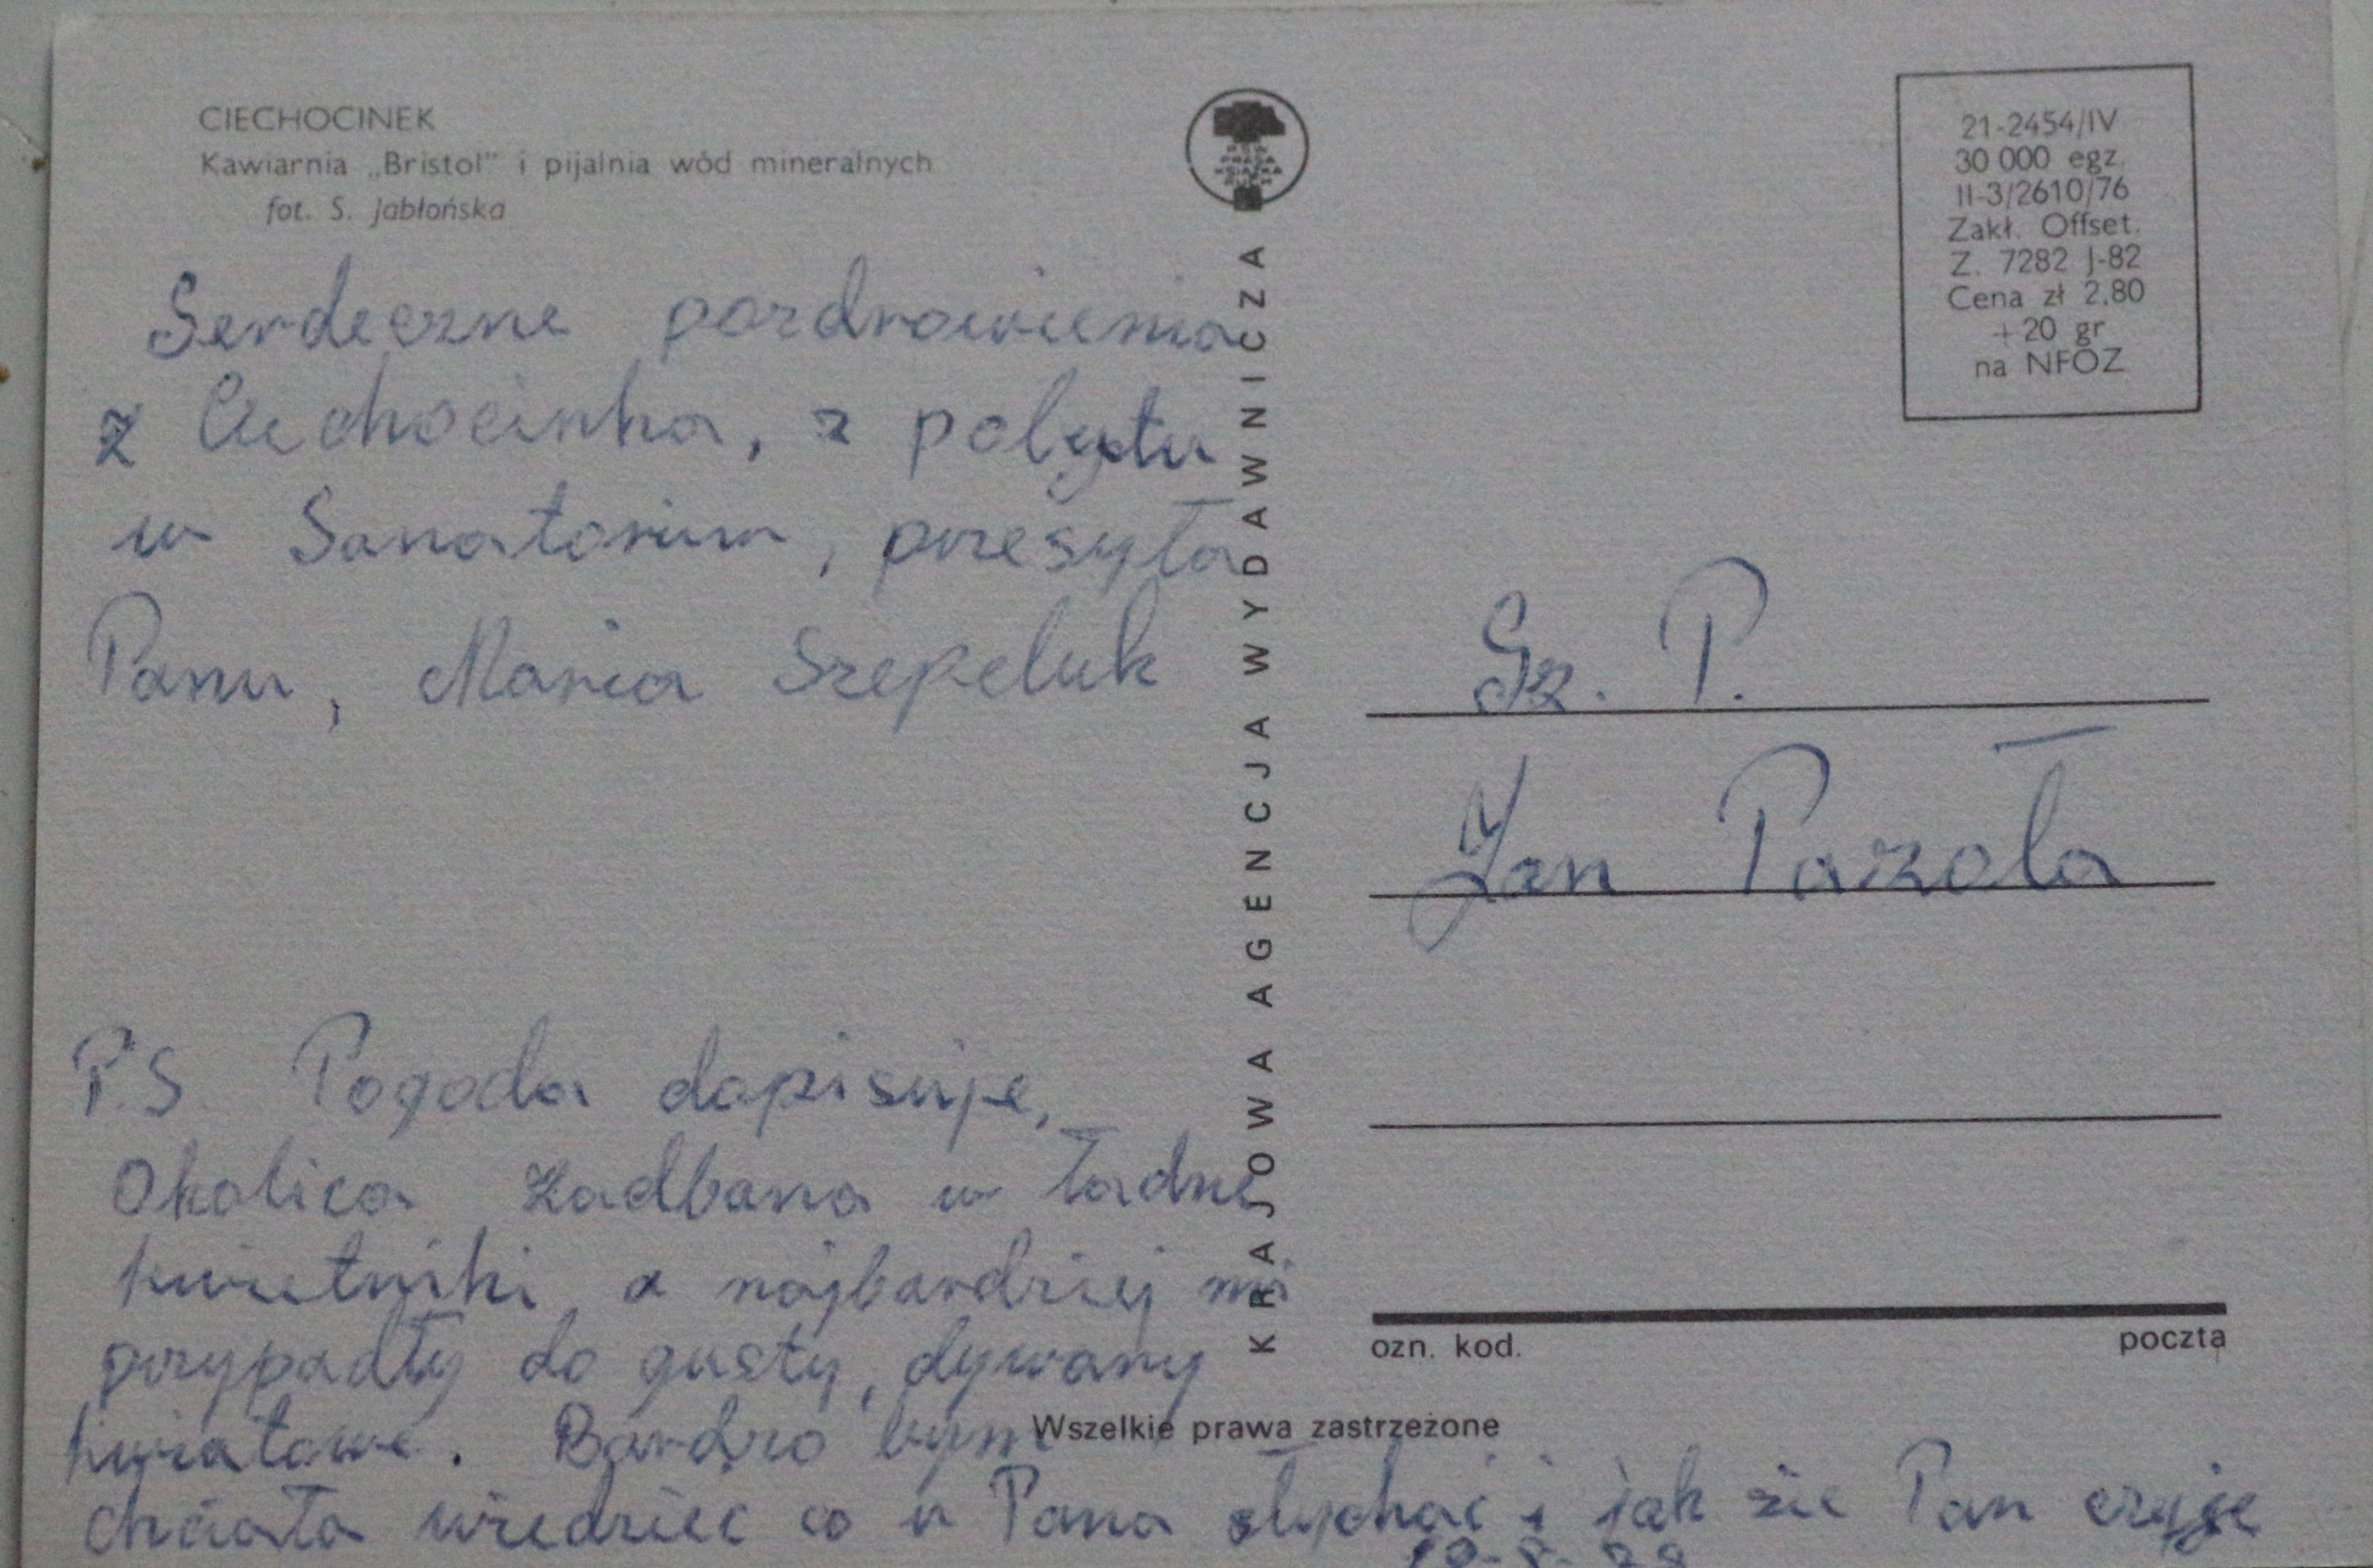 CIECHOCINEK
Kawiarnia „Bristol" i pijalnia wód mineralnych
fot. S. Jabłońska
Serdeczne pozdrowienia
z Ciechocinka, z pobytu
w Sanatorium, przesyła
Panu, Maria Szepeluk
P.S. Pogoda dopisuje,
Okolica zadbana w ładne
kwietniki, a najbardziej mi
przypadły do gusty, dywany
kwiatowe. Bardzo bym
chciała wiedzieć co u Pana słychać i jak sie Pan czuje
KRAJOWA AGENCJA WYDAWNICZA
RSW
PRASA
KSIĄŻKA
RUCH
21-2454/IV
30 000 egz.
II-3/2610/76
Zakł. Offset.
Z. 7282 J-82
Cena zł 2,80
+20 gr
na NFOZ
Sz. P.
Jan Pazoła
ozn. kod. poczta
Wszelkie prawa zastrzeżone